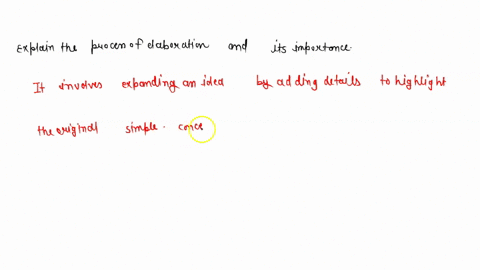 Explain the process of elaboration and its importance.
It involves expanding an idea by adding details to highlight
the original simple. conce